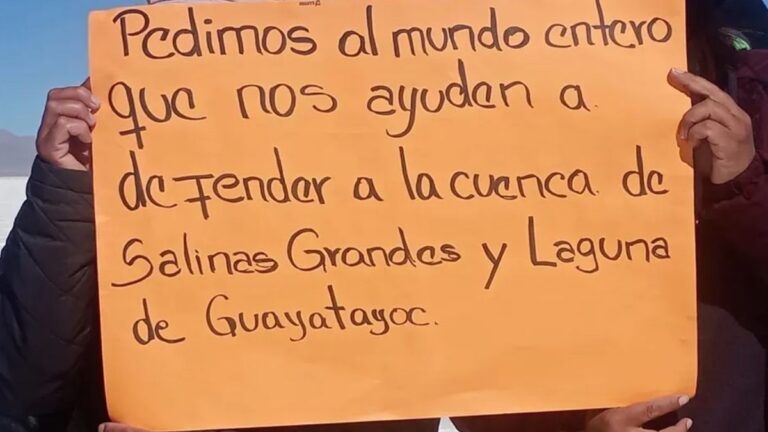 Pedimos al mundo entero
que nos ayuden a
defender a la cuenca de
Salinas Grandes y Laguna
de Guayatayoc.